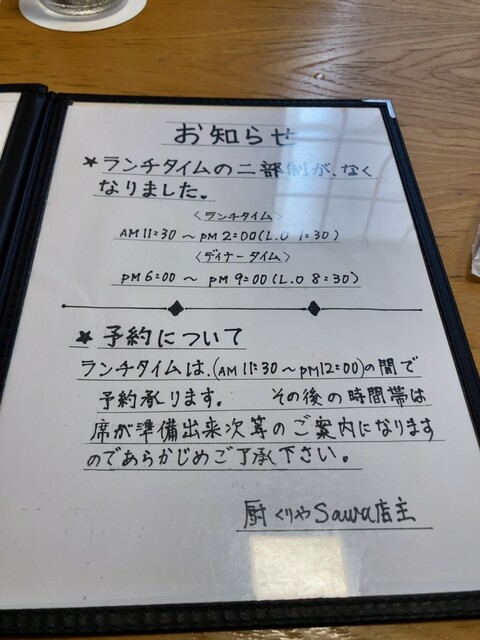 お知らせ
★ランチタイムの二部制が、なく
なりました。
〈ランチタイム〉
AM11:30 ～ PM2:00(L.O 1:30)
〈ディナータイム〉
PM6:00 ～ PM9:00(L.O 8:30)
★予約について
ランチタイムは、(AM11:30～PM12:00)の間で
予約承ります。 その後の時間帯は
席が準備出来次第のご案内になります
のであらかじめご了承下さい。
厨くりやSawa店主